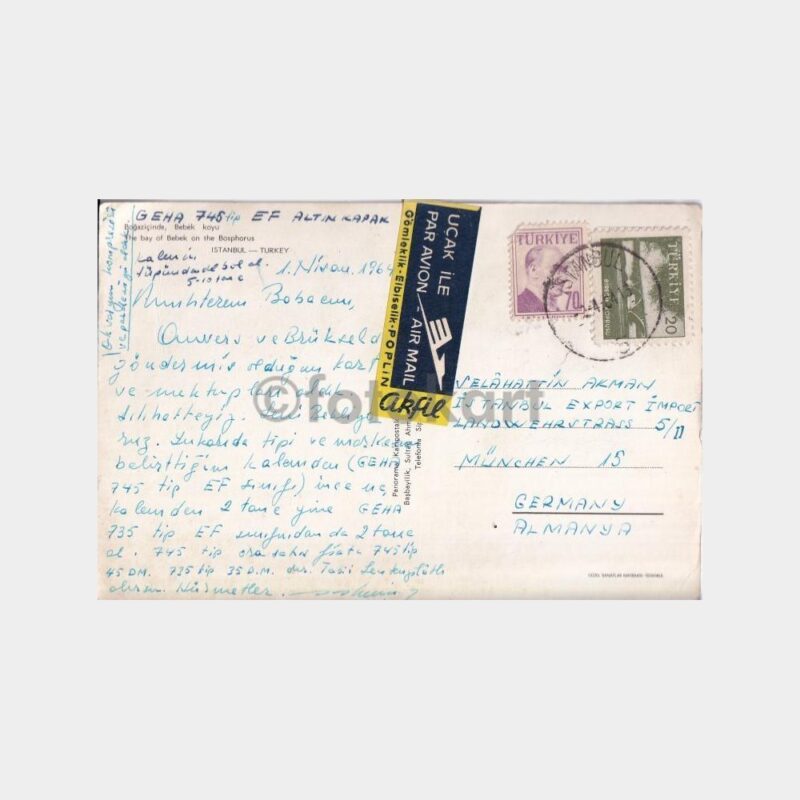 GEHA 745 tip EF ALTIN KAPAK
Boğaziçinde, Bebek koyu
The bay of Bebek on the Bosphorus
ISTANBUL — TURKEY
Kalemin
5-10 tane
1. Nisan. 1964
Muhterem Babacım,
Anvers ve Brükselden
göndermiş olduğun kart
ve mektupları aldık
Sıhhatteyiz. Seni bekliyo
ruz. Yukarıda tipi ve markasını
belirttiğim kalemden (GEHA
745 tip EF sınıfı) ince uç
kalemden 2 tane yine GEHA
735 tip EF sınıfından da 2 tane
al. 745 tip
45 DM. 735 tip 35 D.M. dır.
olsun. Hürmetler.
UÇAK İLE
PAR AVION - AIR MAIL
Gömleklik-Elbiselik-POPLİN
akfil
TÜRKİYE
70
TÜRKİYE
20
ISTANBUL
SELÂHATTİN AKMAN
ISTANBUL EXPORT İMPORT
LANDWEHRSTRASS 5/II
MÜNCHEN 15
GERMANY
ALMANYA
©fotokart